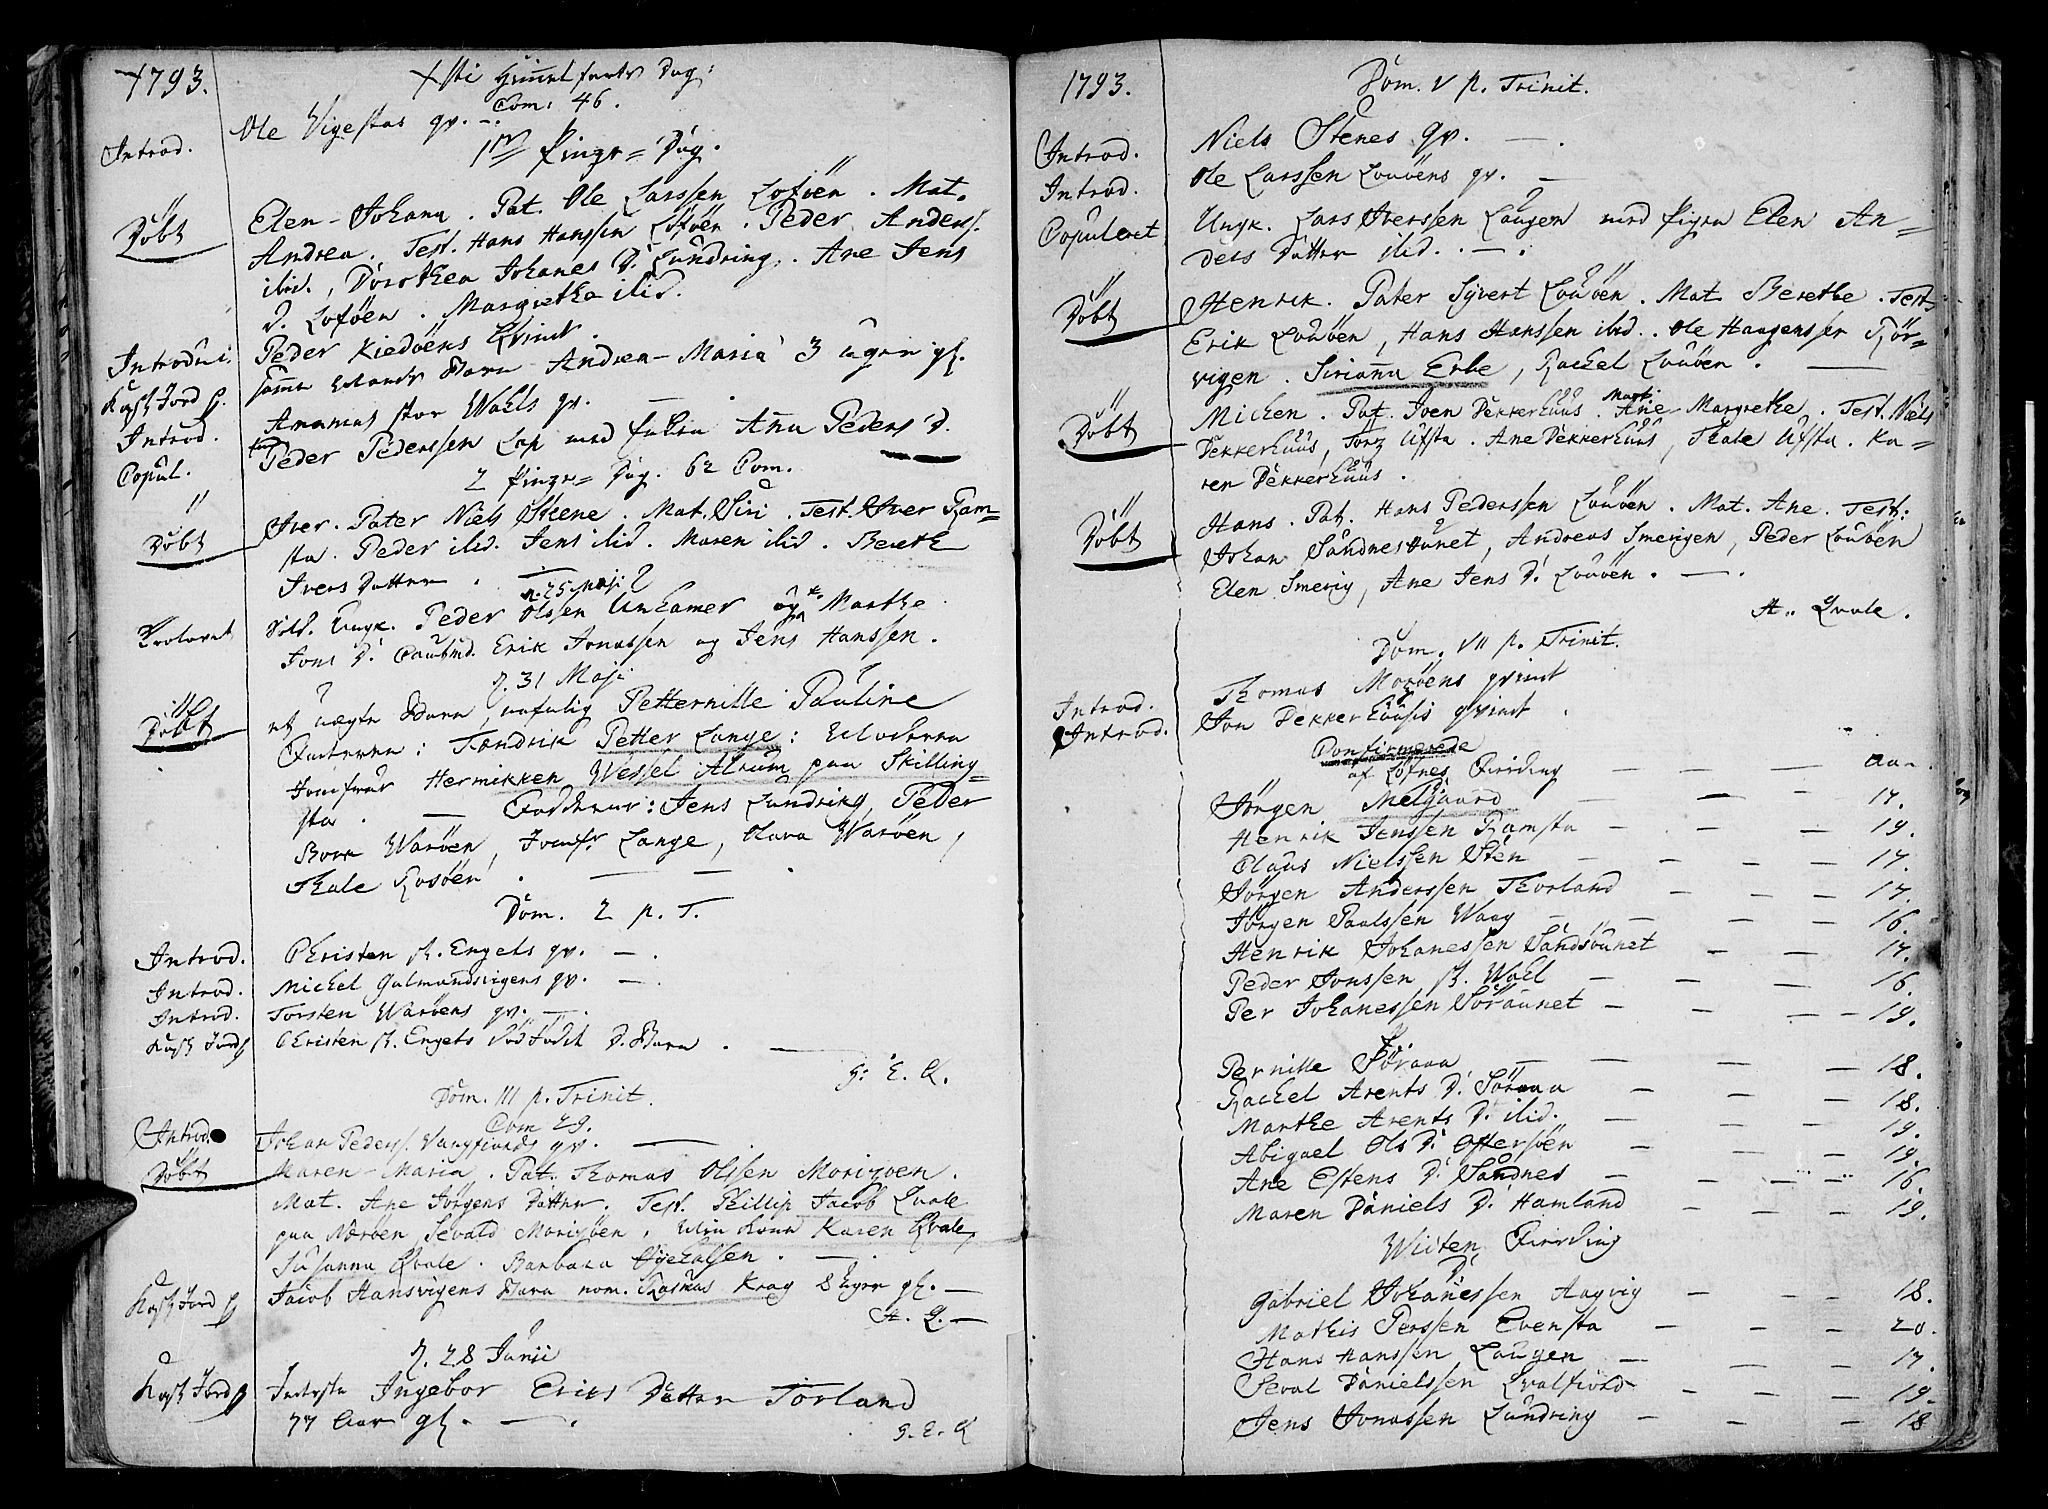 1793.
Xsti Himmelfarts Dag:
Com: 46.
Ole Vigestas qv. —
Introd.
1ste Pinge= Dag.
Døbt
Elen-Johanna. Pat. Ole Larssen Loföen. Mat.
Andrea. Test. Hans Hanssen Loföen. Peder Anders.
ibid., Dorothea Johanes D. Lundring. Ane Jens
D. Loföen. Margretha ibid.
Introduc.
Peder Kiedöens Qvinde.
Kast Jord p.
samme Mands Barn Andrea-Maria 3 uger gl.
Introd.
Ananias stor Wahls qv. —
Copul.
Peder Pederssen Lap med Anna Peders D.
2 Pinge= Dag. 62 Com.
Døbt
Iver. Pater Niels Steene. Mat. Siri. Test. Iver Ram=
sta. Peder ibid. Jens ibid. Maren ibid. Berethe
Ivers Datter.
d. 25 Maji
Trolovet
Sold. Ungk. Peder Olssen Unhamer og Marthe
Jons D. Erik Jonassen og Jens Hanssen.
d. 31 Maji
Døbt
et uægte Barn, nafnlig Petternille Pauline
Faderen: Fændrik Petter Lange: Moderen
Jomfrue Hermikken Wessel Alrum paa Skilling=
sta. — Fadderne: Jens Lundring, Peder
Bork Waröen, Jomfr. Lange, Olava Waröen,
Thale Rosöen. — —
Dom. 2 p. T.
Introd.
Christen Engels qv. —
Introd.
Michel Gulmandsvigens qv. —
Introd.
Torsten Waröens qv. —
Kast Jord p
Christen Engels Dödfödt D. Barn. —
G: E. K.
Dom. III p. Trinit.
Com 29.
Introd.
Johan Peders. Vangfiords qv. —
Døbt
Maren-Maria. Pat. Thomas Olssen Morisöen.
Mat. Ane Jörgens Datter. Test. Phillip Jacob Qvale
paa Næröen, Sevald Morisöen, min kone Karen Qvale,
Susanna Qvale. Barbara
Kast Jord p
Jacob Hansvigens Barn nom. Rasmus Krag 8 Uger gl. —
A. Q. —
d. 28 Junii
Kast Jord p
Indersten Ingebor Eriks Datter Torland
77 Aar gl. —
G. E. K
1793.
Dom. V p. Trinit.
Introd.
Niels Stenes qv. —
Introd.
Ole Larssen Lauöens qv. —
Copuleret
Ungk. Lars Iverssen Laugen med Pigen Elen An=
ders Datter ibid. —
Døbt
Henrik. Pater Syvert Lauöen. Mat. Berethe. Test.
Erik Lauöen, Hans Hanssen ibid. Ole Haagenssen Rör=
vigen. Sirianna Erbe, Rachel Lauöen. —
Døbt
Michen. Pat. Joen Dekkerhuus. Mat. Ane-Margrethe. Test. Niels
Dekkerhuus, Torg Ufsta. Ane Dekkerhuus, Thale Ufsta. Ka=
ren Dekkerhuus.
Døbt
Hans. Pat. Hans Pederssen Lauöen. Mat. Ane. Test:
Johan Sandneshunet, Andreas Smeingen, Peder Lauöen
Elen Smevig, Ane Jens D. Lauöen. —
A. Qvale.
Dom. VII p. Trinit.
Introd.
Thomas Moröens qvinde
Introd.
Jon Dekkerhuusis qvinde.
Confirmerede
af Lofnes Fierding — — — Aar
Jörgen Melgaard — — — 17.
Henrik Jenssen Ramsta — — — 19.
Claus Nielssen Sten — — — 17.
Jörgen Anderssen Thorland — — — 17.
Jörgen Paulssen Waag — — — 16.
Henrik Johanessen Sandsöunet — — 17.
Peder Jonssen Wahl — — — 16.
Per Johanessen Söraunet — — — 19.
P.
Pernille Söraaa — — — 18.
Rachel Arents D. Söraaa — — — 18.
Marthe Arents D. ibid. — — — 19.
Abigael Ols D. Oftersöen — — — 19.
Ane Estens D. Sandnes — — — 16.
Maren Daniels D. Hamland — — — 19.
Wiisten Fierding
D.
Gabriel Johanessen Aagvig — — — 18.
Mathis Perssen Evensta — — — 20.
Hans Hanssen Laugen — — — 17.
Seval Danielssen Qvalfiord — — — 19.
Jens Jonassen Lundring — — — 18